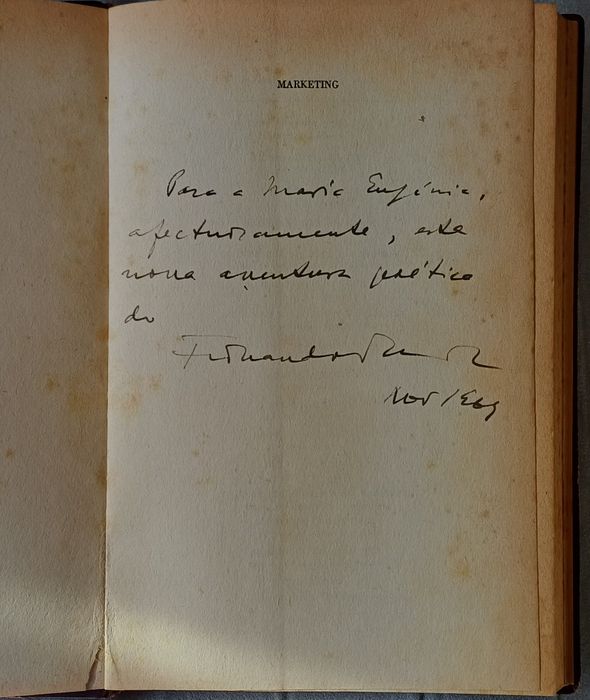 MARKETING
Para a Maria Eugénia,
afectuosamente, esta
nova aventura poética
do
Fernando
Nov 1969